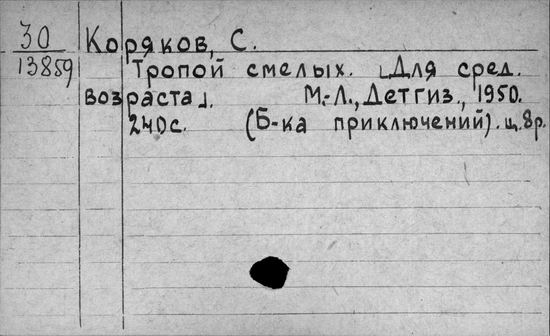 30 Коряков, С.
13859 Тропой смелых. [Для сред.
возраста]. М.-Л., Детгиз., 1950.
240с. (Б-ка приключений). ц. 8р.